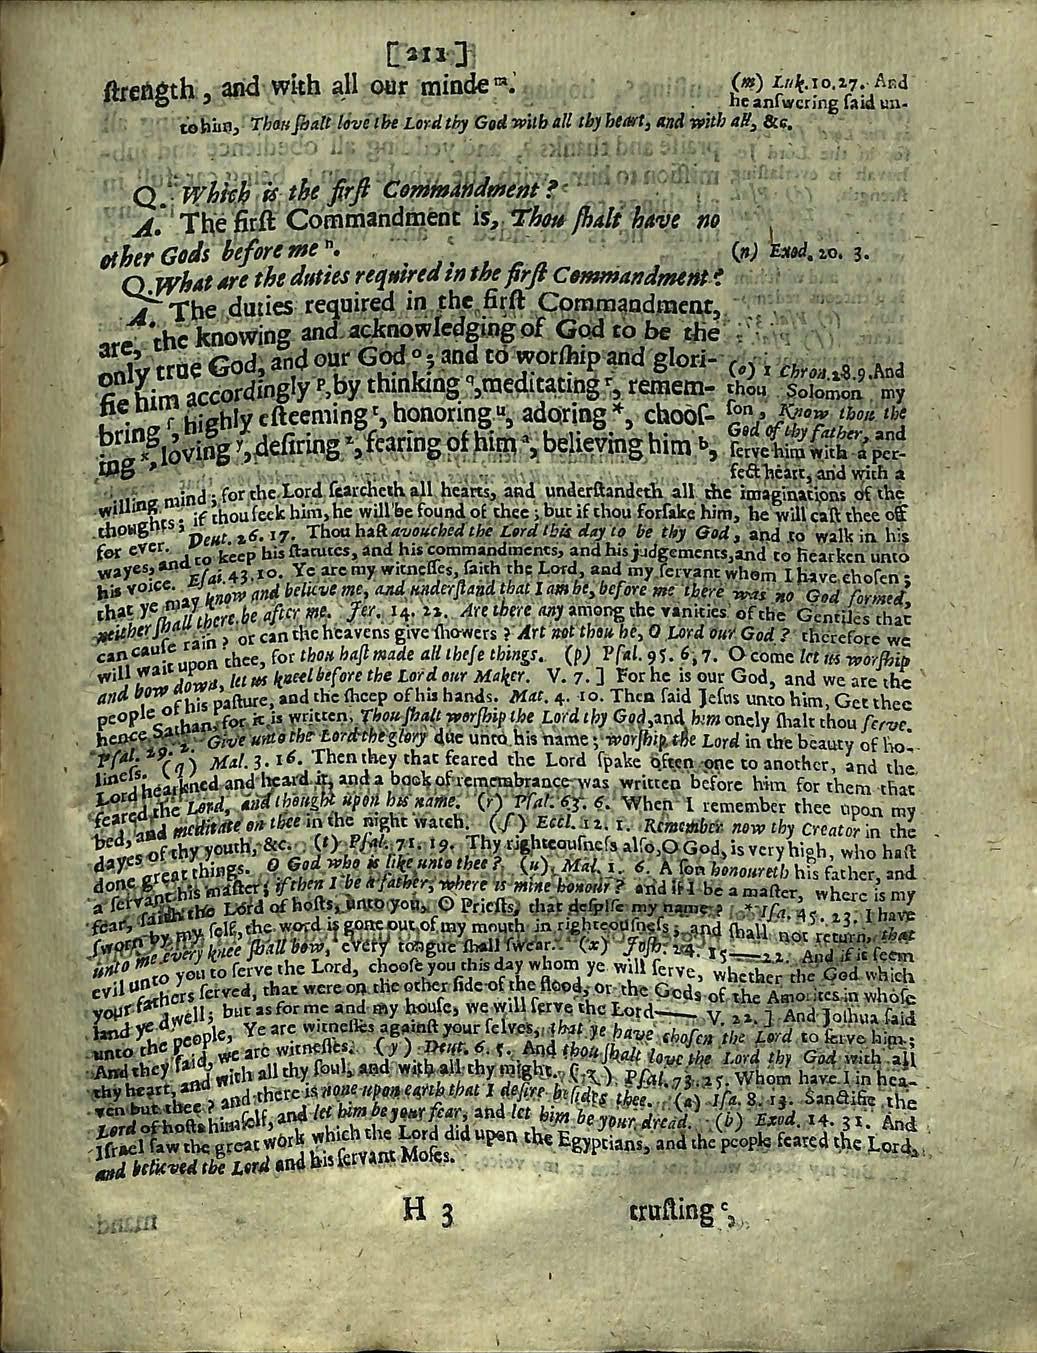 [211]
ſtrength, and with all our minde ᵐ.
(m) Luk. 10. 27. And
he anſwering ſaid un-
to him, Thou ſhalt love the Lord thy God with all thy heart, and with all, &c.
Q. Which is the firſt Commandment?
A. The firſt Commandment is, Thou ſhalt have no
other Gods before me ⁿ.
(n) Exod. 20. 3.
Q. What are the duties required in the firſt Commandment?
A. The duties required in the firſt Commandment,
are, the knowing and acknowledging of God to be the
only true God, and our God ᵒ; and to worſhip and glori-
fie him accordingly ᵖ, by thinking ᑫ, meditating ʳ, remem-
bring ſ, highly eſteeming ᵗ, honoring ᵘ, adoring *, chooſ-
ing ˣ, loving ʸ, deſiring ᶻ, fearing of him ᵃ, believing him ᵇ,
(o) 1 Chron. 28. 9. And
thou Solomon my
ſon, Know thou the
God of thy father, and
ſerve him with a per-
fect heart, and with a
willing mind; for the Lord ſearcheth all hearts, and underſtandeth all the imaginations of the
thoughts; if thou ſeek him, he will be found of thee; but if thou forſake him, he will caſt thee off
for ever. Deut. 26. 17. Thou haſt avouched the Lord this day to be thy God, and to walk in his
wayes, and to keep his ſtatutes, and his commandments, and his judgements, and to hearken unto
his voice. Eſai. 43. 10. Ye are my witneſſes, ſaith the Lord, and my ſervant whom I have choſen;
that ye may know and believe me, and underſtand that I am he, before me there was no God formed,
neither ſhall there be after me. Jer. 14. 22. Are there any among the vanities of the Gentiles that
can cauſe rain? or can the heavens give ſhowers? Art not thou he, O Lord our God? therefore we
will wait upon thee, for thou haſt made all theſe things. (p) Pſal. 95. 6, 7. O come let us worſhip
and bow down, let us kneel before the Lord our Maker. V. 7. ] For he is our God, and we are the
people of his paſture, and the ſheep of his hands. Mat. 4. 10. Then ſaid Jeſus unto him, Get thee
hence Sathan, for it is written, Thou ſhalt worſhip the Lord thy God, and him onely ſhalt thou ſerve.
Pſal. 29. 2. Give unto the Lord the glory due unto his name; worſhip the Lord in the beauty of ho-
lineſs. (q) Mal. 3. 16. Then they that feared the Lord ſpake often one to another, and the
Lord hearkned and heard it, and a book of remembrance was written before him for them that
feared the Lord, and thought upon his name. (r) Pſal. 63. 6. When I remember thee upon my
bed, and meditate on thee in the night watch. (ſ) Eccl. 12. 1. Remember now thy Creator in the
dayes of thy youth, &c. (t) Pſal. 71. 19. Thy righteouſneſs alſo, O God, is very high, who haſt
done great things. O God who is like unto thee? (u) Mal. 1. 6. A ſon honoureth his father, and
a ſervant his maſter; if then I be a father, where is mine honour? and if I be a maſter, where is my
fear, ſaith the Lord of hoſts, unto you, O Prieſts, that deſpiſe my name? * Iſa. 45. 23. I have
ſworn by my ſelf, the word is gone out of my mouth in righteouſneſs; and ſhall not return, that
unto me every knee ſhall bow, every tongue ſhall ſwear. (x) Joſh. 24. 15——22. And if it ſeem
evil unto you to ſerve the Lord, chooſe you this day whom ye will ſerve, whether the God which
your fathers ſerved, that were on the other ſide of the flood, or the Gods of the Amorites in whoſe
land ye dwell; but as for me and my houſe, we will ſerve the Lord—— V. 22. ] And Joſhua ſaid
unto the people, Ye are witneſſes againſt your ſelves, that ye have choſen the Lord to ſerve him;
And they ſaid, we are witneſſes. (y) Deut. 6. 5. And thou ſhalt love the Lord thy God with all
thy heart, and with all thy ſoul, and with all thy might. (z) Pſal. 73. 25. Whom have I in hea-
ven but thee? and there is none upon earth that I deſire beſides thee. (a) Iſa. 8. 13. Sanctifie the
Lord of hoſts himſelf, and let him be your fear, and let him be your dread. (b) Exod. 14. 31. And
Iſrael ſaw the great work which the Lord did upon the Egyptians, and the people feared the Lord,
and believed the Lord and his ſervant Moſes.
H 3
truſting ᶜ,